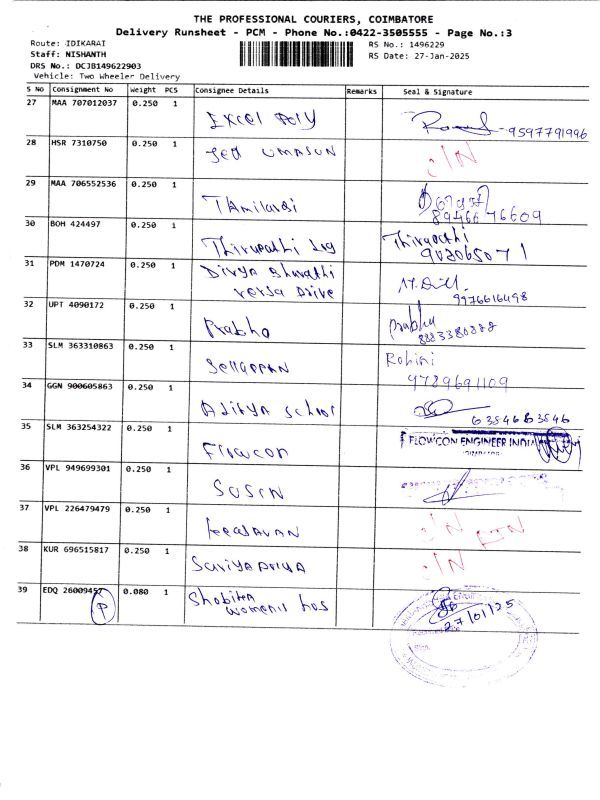 THE PROFESSIONAL COURIERS, COIMBATORE
Delivery Runsheet - PCM - Phone No.:0422-3505555 - Page No.:3
Route: IDIKARAI
RS No.: 1496229
Staff: NISHANTH
RS Date: 27-Jan-2025
DRS No.: DCJB149622903
Vehicle: Two Wheeler Delivery
S No Consignment No Weight PCS Consignee Details Remarks Seal & Signature
27 MAA 707012037 0.250 1 Excel Poly 9597791996
28 HSR 7310750 0.250 1 O/N
29 MAA 706552536 0.250 1 TAmilarasi 89466 76609
30 BOH 424497 0.250 1 Thirupathi Thirupathi
31 PDM 1470724 0.250 1 Divya Bharathi
versa Drive
9976616498
32 UPT 4090172 0.250 1 Prabho Prabhu
33 SLM 363310863 0.250 1 Sellappan Rohini
9789691109
34 GGN 900605863 0.250 1 Aditya School
6354663546
35 SLM 363254322 0.250 1 Flowcon FLOWCON ENGINEER INDIA
36 VPL 949699301 0.250 1 SUSIN
37 VPL 226479479 0.250 1 O/N
38 KUR 696515817 0.250 1 O/N
39 EDQ 26009457 0.080 1 Shobika
womens hos
P
27/01/25